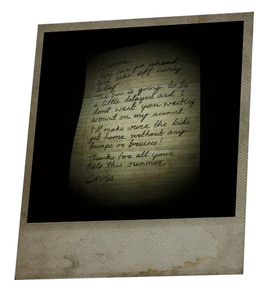 you can go ahead
and take off early
today
The bus is going to be
a little delayed and I
don't want you waiting
around on my account.
I'll make sure the kids
get home without any
bumps or bruises!
Thanks for all your
help this summer.